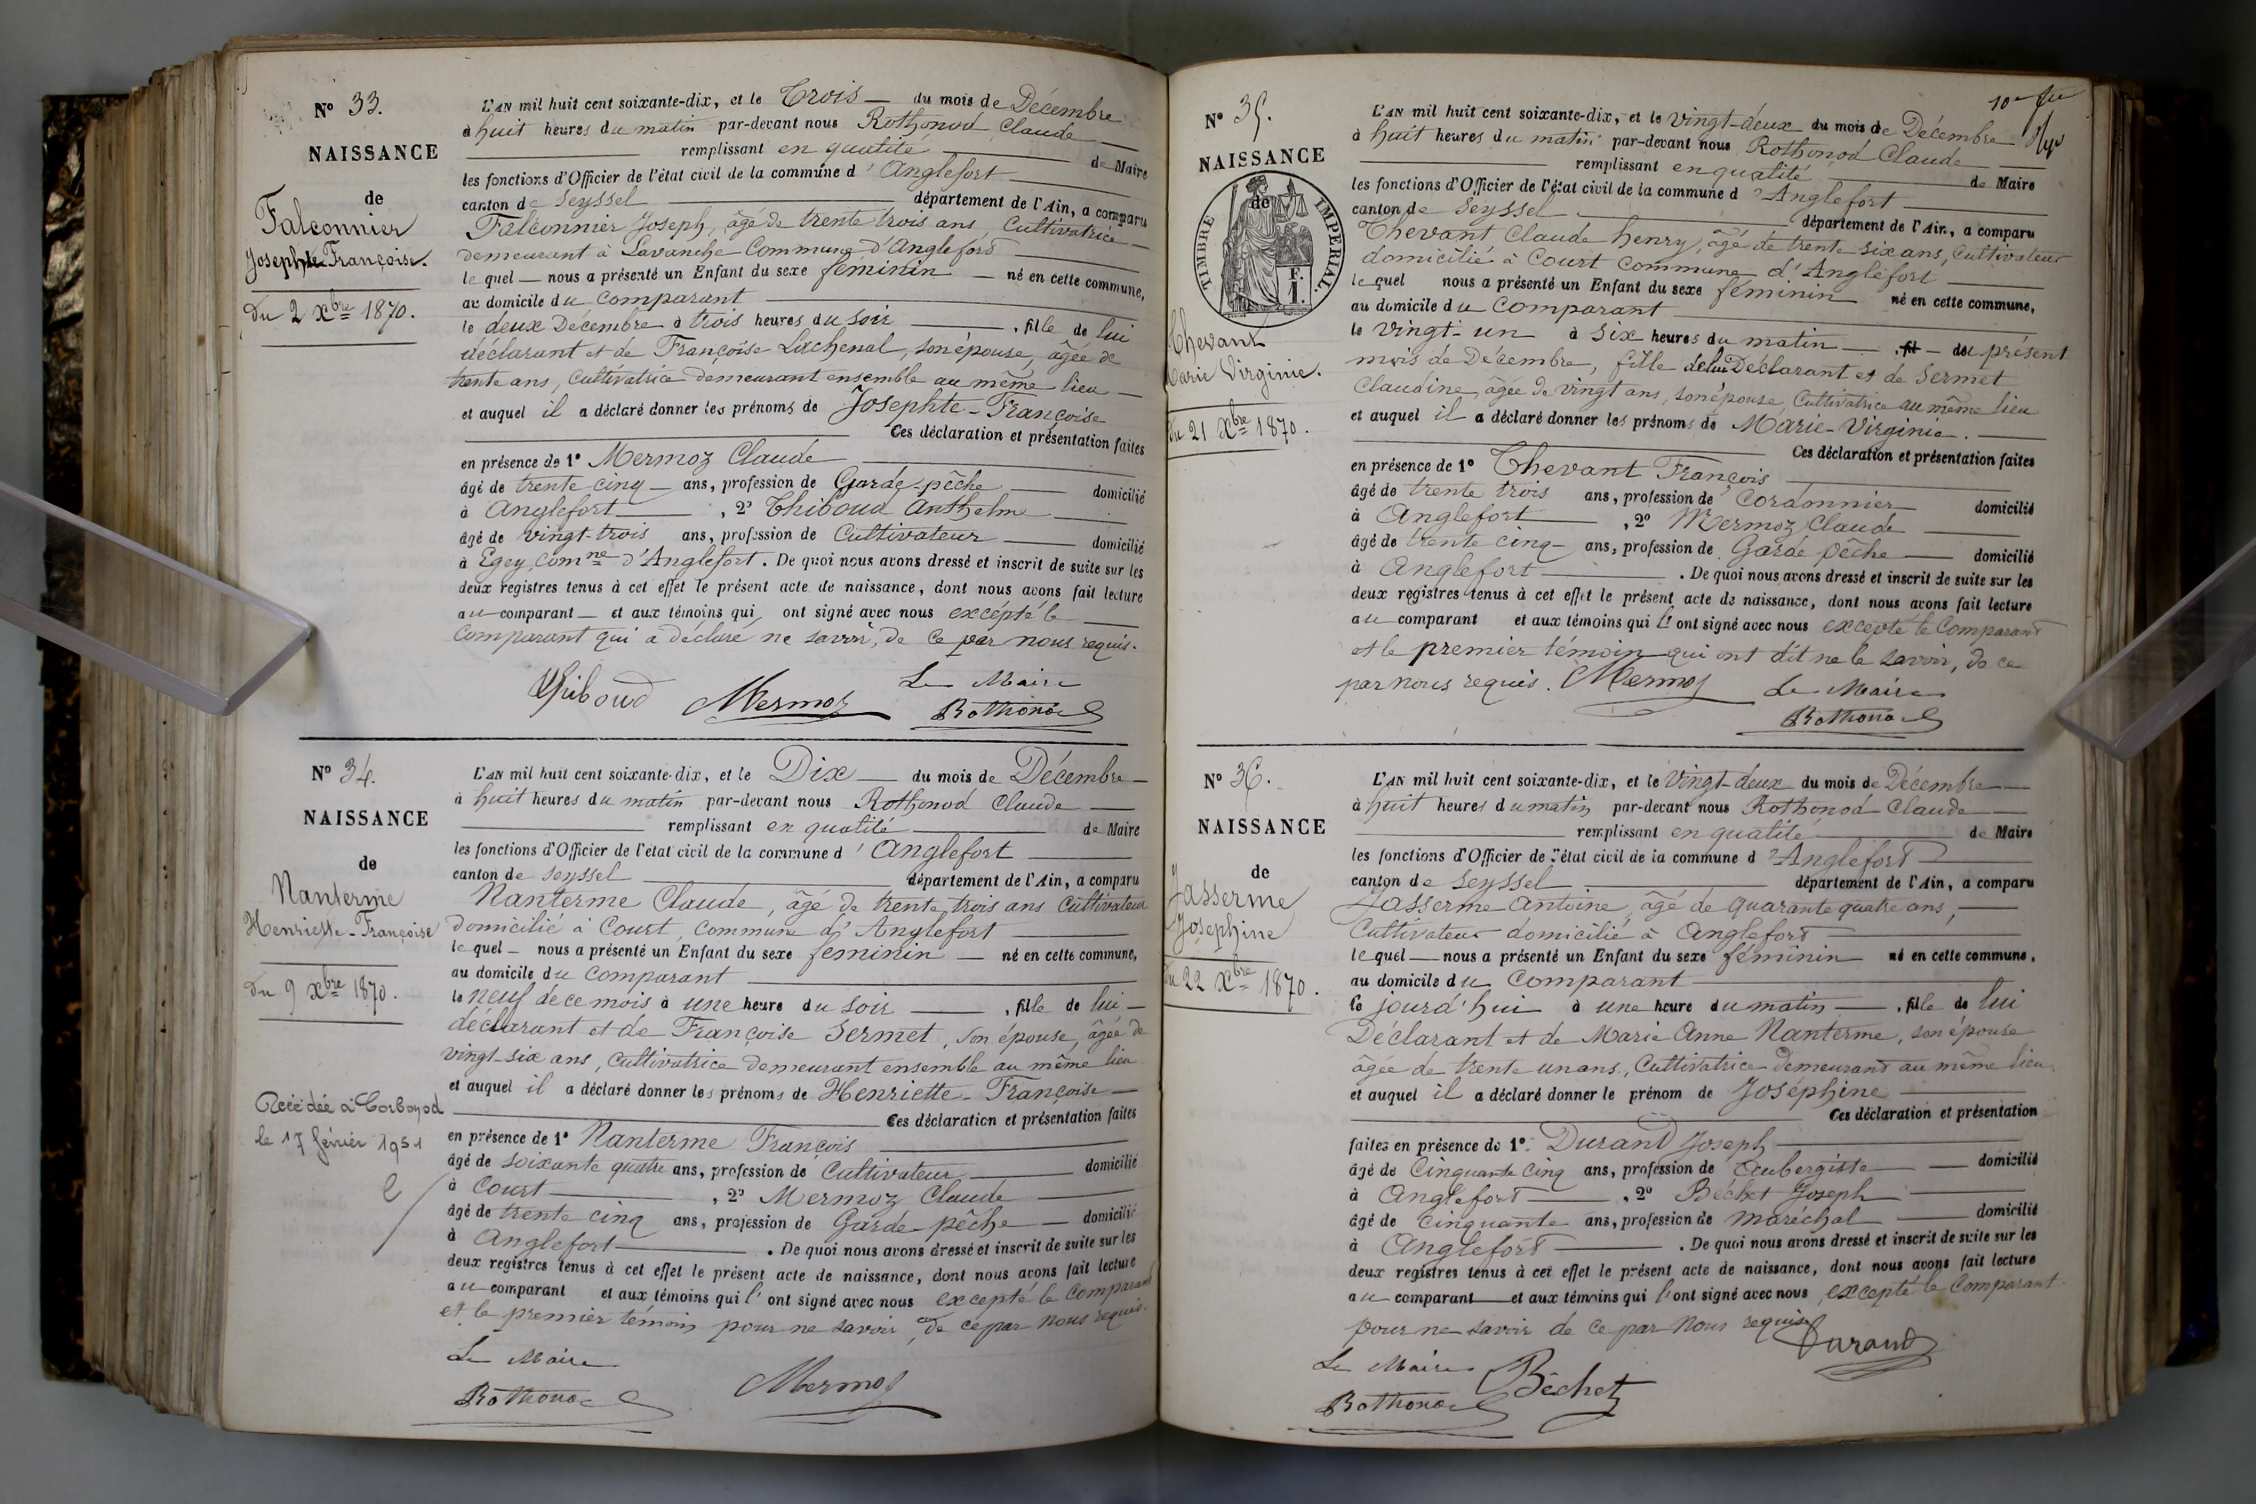 Nº 33.
NAISSANCE
de
Falconnier
Josephte-Françoise.
Du 2 Xbre 1870.
L'AN mil huit cent soixante-dix, et le Trois du mois de Décembre
à huit heures du matin par-devant nous Rothonod Claude
remplissant en qualité de Maire
les fonctions d'Officier de l'état civil de la commune d'Anglefort
canton de Seyssel département de l'Ain, a comparu
Falconnier Joseph, âgé de trente trois ans, Cultivatrice
demeurant à Lavanche Commune d'Anglefort
le quel nous a présenté un Enfant du sexe féminin né en cette commune,
au domicile du comparant
le deux Décembre à trois heures du soir , fille de lui
déclarant et de Françoise Lachenal, son épouse, âgée de
trente ans, Cultivatrice demeurant ensemble au même lieu
et auquel il a déclaré donner les prénoms de Josephte-Françoise
Ces déclaration et présentation faites
en présence de 1º Mermoz Claude
âgé de trente cinq ans, profession de Garde-pêche domicilié
à Anglefort , 2º Thiboud Anthelme
âgé de vingt-trois ans, profession de Cultivateur domicilié
à Egey, Comne d'Anglefort. De quoi nous avons dressé et inscrit de suite sur les
deux registres tenus à cet effet le présent acte de naissance, dont nous avons fait lecture
au comparant et aux témoins qui ont signé avec nous excépté le
Comparant qui a déclaré ne savoir, de ce par nous requis.
Thiboud Mermoz Le Maire
Rothonod
Nº 34.
NAISSANCE
de
Nanterme
Henriette-Françoise
Du 9 Xbre 1870.
Décédée à Corbonod
le 17 février 1951
L'AN mil huit cent soixante-dix, et le Dix du mois de Décembre
à huit heures du matin par-devant nous Rothonod Claude
remplissant en qualité de Maire
les fonctions d'Officier de l'état civil de la commune d'Anglefort
canton de Seyssel département de l'Ain, a comparu
Nanterme Claude, âgé de trente trois ans Cultivateur
domicilié à Court, Commune d'Anglefort
le quel nous a présenté un Enfant du sexe féminin né en cette commune,
au domicile du comparant
le neuf de ce mois à une heure du soir , fille de lui
déclarant et de Françoise Sermet, son épouse, âgée de
vingt-six ans, Cultivatrice demeurant ensemble au même lieu
et auquel il a déclaré donner les prénoms de Henriette-Françoise
Ces déclaration et présentation faites
en présence de 1º Nanterme François
âgé de soixante quatre ans, profession de Cultivateur domicilié
à Court , 2º Mermoz Claude
âgé de trente cinq ans, profession de Garde-pêche domicilié
à Anglefort . De quoi nous avons dressé et inscrit de suite sur les
deux registres tenus à cet effet le présent acte de naissance, dont nous avons fait lecture
au comparant et aux témoins qui l'ont signé avec nous excepté le Comparant
et le premier témoin pour ne savoir, de ce par nous requis.
Le Maire
Rothonod Mermoz
Nº 35.
NAISSANCE
de
TIMBRE IMPERIAL.
Thevant
Marie Virginie.
du 21 Xbre 1870.
L'AN mil huit cent soixante-dix, et le vingt-deux du mois de Décembre
à huit heures du matin par-devant nous Rothonod Claude
remplissant en qualité de Maire
les fonctions d'Officier de l'état civil de la commune d'Anglefort
canton de Seyssel département de l'Ain, a comparu
Thevant Claude henry, âgé de trente six ans, Cultivateur
domicilié à Court Commune d'Anglefort
le quel nous a présenté un Enfant du sexe féminin né en cette commune,
au domicile du comparant
le vingt-un à six heures du matin , fil du présent
mois de Décembre, fille de lui Déclarant et de Sermet
Claudine, âgée de vingt ans, son épouse, Cultivatrice au même lieu
et auquel il a déclaré donner les prénoms de Marie-Virginie.
Ces déclaration et présentation faites
en présence de 1º Thevant François
âgé de trente trois ans, profession de Cordonnier domicilié
à Anglefort , 2º Mermoz Claude
âgé de trente cinq ans, profession de Garde pêche domicilié
à Anglefort . De quoi nous avons dressé et inscrit de suite sur les
deux registres tenus à cet effet le présent acte de naissance, dont nous avons fait lecture
au comparant et aux témoins qui l'ont signé avec nous excepté le Comparant
et le premier témoin qui ont dit ne le savoir, de ce
par nous requis. Mermoz Le Maire
Rothonod
Nº 36.
NAISSANCE
de
Jasserme
Josephine
du 22 Xbre 1870.
L'AN mil huit cent soixante-dix, et le Vingt-deux du mois de Décembre
à huit heures du matin par-devant nous Rothonod Claude
remplissant en qualité de Maire
les fonctions d'Officier de l'état civil de la commune d'Anglefort
canton de Seyssel département de l'Ain, a comparu
Jasserme Antoine, âgé de quarante quatre ans,
Cultivateur domicilié à Anglefort
le quel nous a présenté un Enfant du sexe féminin né en cette commune,
au domicile du Comparant
le jourd'hui à une heure du matin , fille de lui
Déclarant et de Marie Anne Nanterme, son épouse
âgée de trente un ans, Cultivatrice demeurant au même lieu
et auquel il a déclaré donner le prénom de Joséphine
Ces déclaration et présentation
faites en présence de 1º Durand Joseph
âgé de Cinquante cinq ans, profession de Aubergiste domicilié
à Anglefort , 2º Béchet Joseph
âgé de cinquante ans, profession de maréchal domicilié
à Anglefort . De quoi nous avons dressé et inscrit de suite sur les
deux registres tenus à cet effet le présent acte de naissance, dont nous avons fait lecture
au comparant et aux témoins qui l'ont signé avec nous, excepté le Comparant
pour ne savoir de ce par nous requis
Durand
Le Maire Béchet
Rothonod